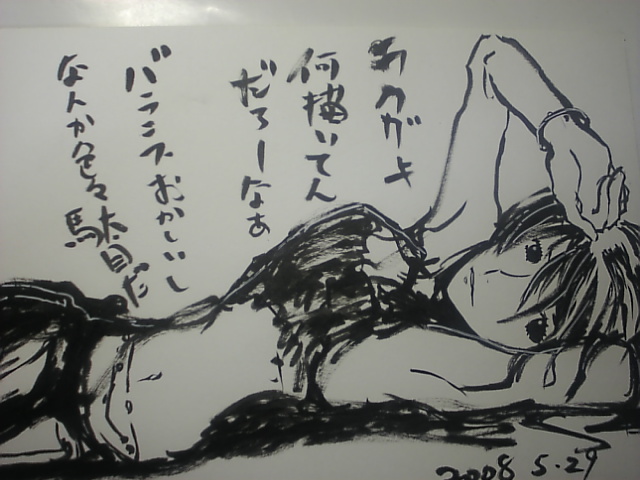 あのがよ
何描いてん
だろーなぁ
バランスおかしいし
なんか色々
駄目だ
2008 5.29